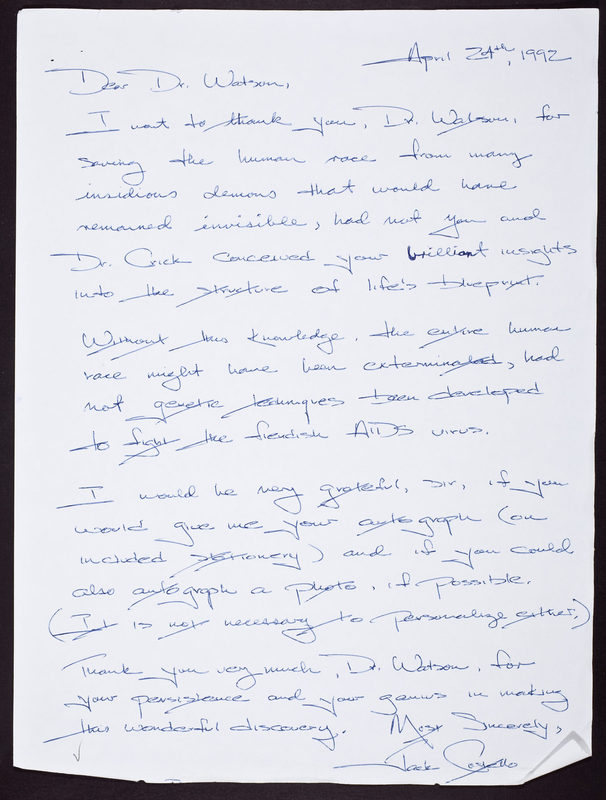 April 24th, 1992
Dear Dr. Watson,
I want to thank you, Dr. Watson, for
saving the human race from many
insidious demons that would have
remained invisible, had not you and
Dr. Crick conceived your brilliant insights
into the structure of life's blueprint.
Without this knowledge, the entire human
race might have been exterminated, had
not genetic techniques been developed
to fight the fiendish AIDS virus.
I would be very grateful, sir, if you
would give me your autograph (on
included stationery) and if you could
also autograph a photo, if possible.
(It is not necessary to personalize either.)
Thank you very much, Dr. Watson, for
your persistence and your genius in making
this wonderful discovery. Most Sincerely,
Jack Costello